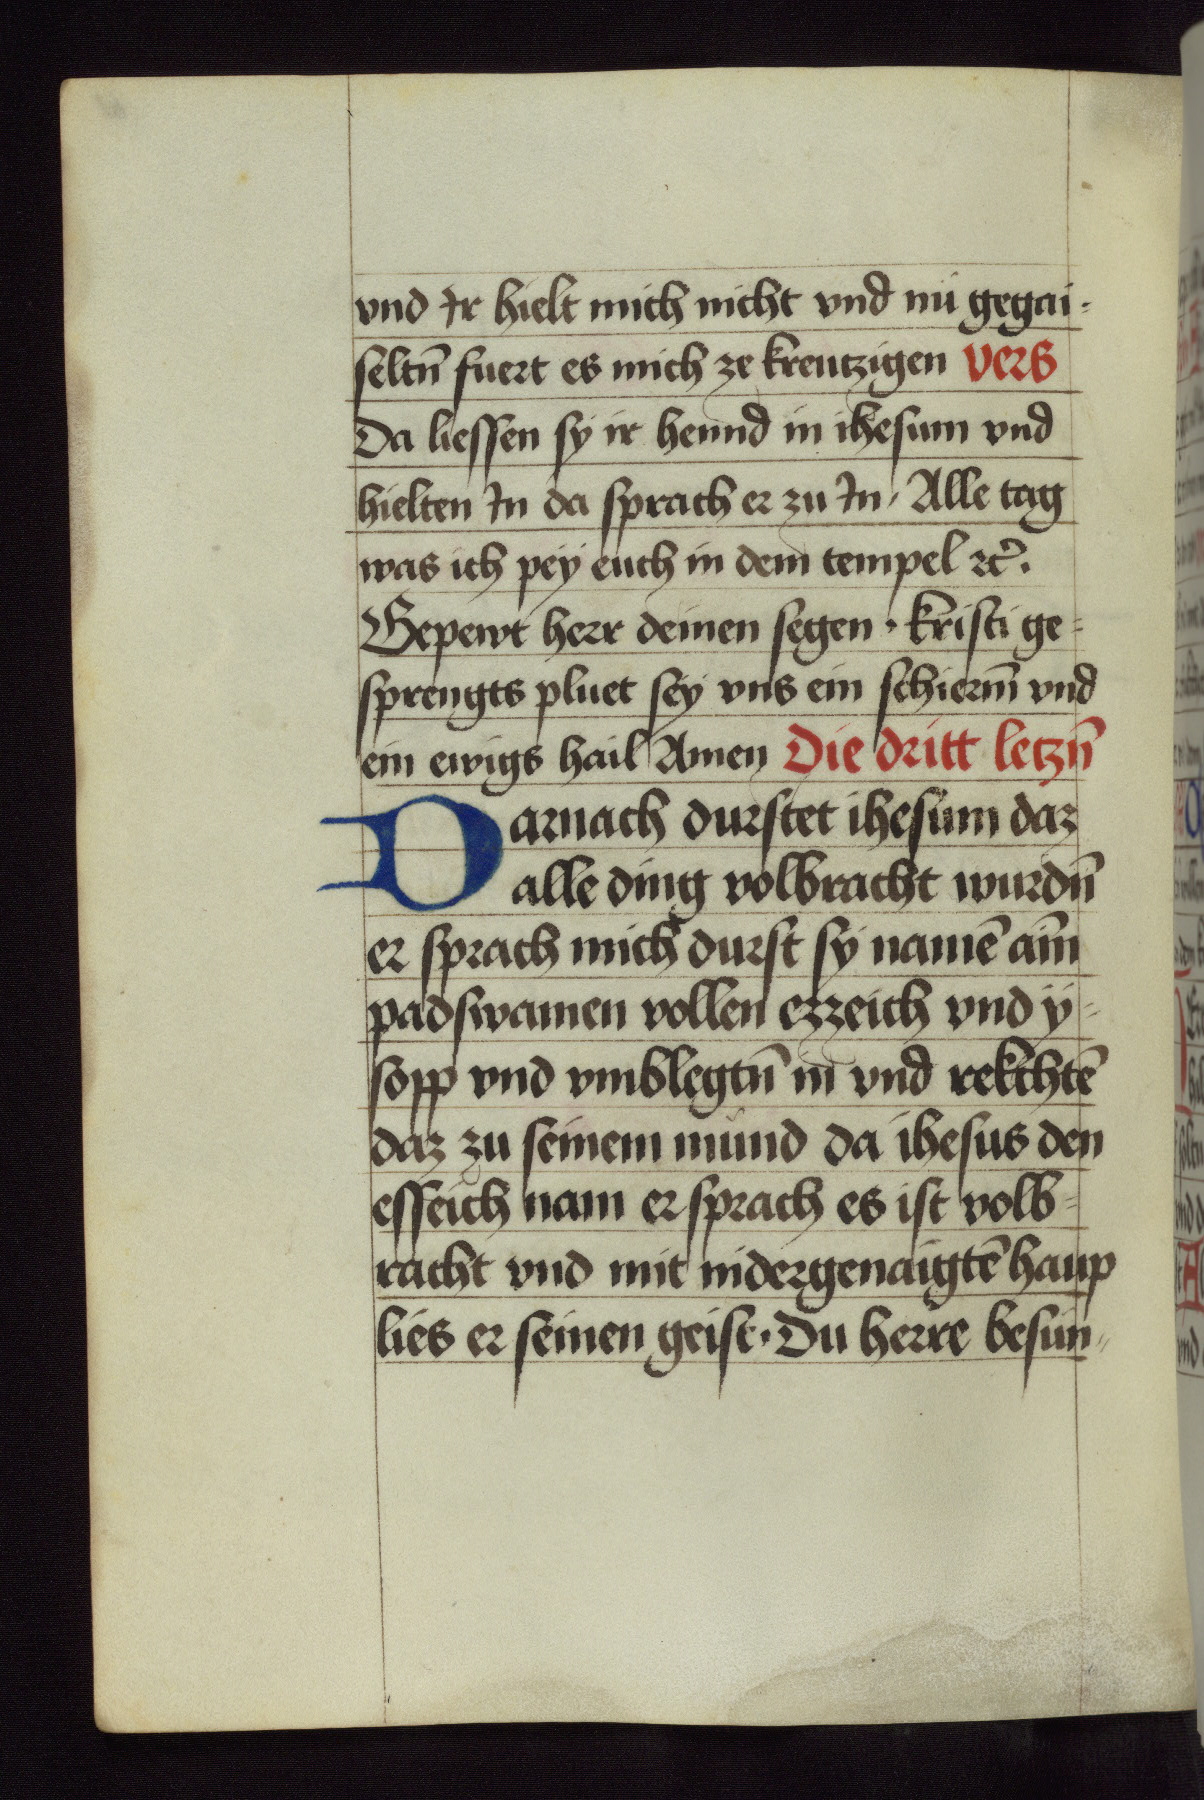 vnd Ir hielt mich nicht vnd nů gegai-
seltn̄ fuert es mich ze kreutzigen Vers
Da liessen sy ir hennd in ihesum vnd
hielten In da sprach er zu In / Alle tag
was ich pey euch in dem tempel ꝛc̄.
Gepewt herr deinen segen · kristi ge-
sprengts pluet sey vns ein schierm̄ vnd
ein ewigs hail Amen Die dritt letzn̄
Darnach durstet ihesum daz
alle ding volbracht wurdn̄
er sprach mich durst sy namē aim̄
padswamen vollen ezzeich vnd y-
sopp vnd vmblegtn̄ in vnd rekchtē
daz zu seinem mund da ihesus den
esseich nam er sprach es ist volb-
racht vnd mit nidergenaigtē haup
lies er seinen geist · Du herre besun-